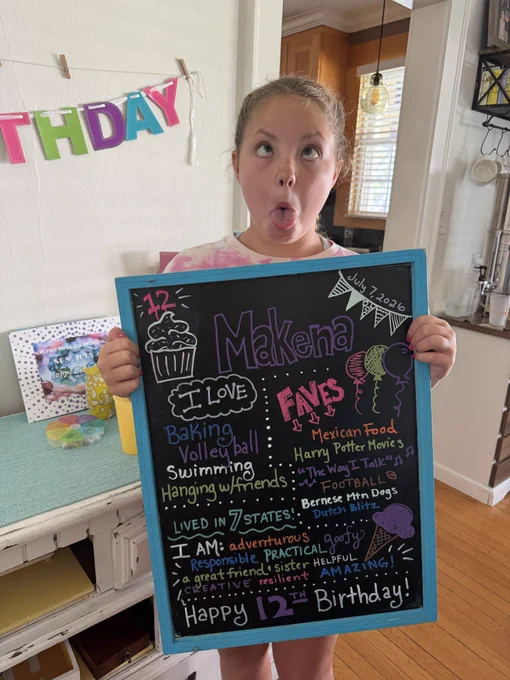 THDAY
July 7, 2026
12
Makena
I LOVE
Baking
Volleyball
Swimming
Hanging w/friends
FAVES
Mexican Food
Harry Potter Movies
"The Way I Talk"
FOOTBALL
Bernese Mtn Dogs
Dutch Blitz
LIVED IN 7 STATES!
I AM: adventurous
goofy
Responsible PRACTICAL
HELPFUL
a great friend & sister
AMAZING!
CREATIVE resilient
Happy 12TH Birthday!